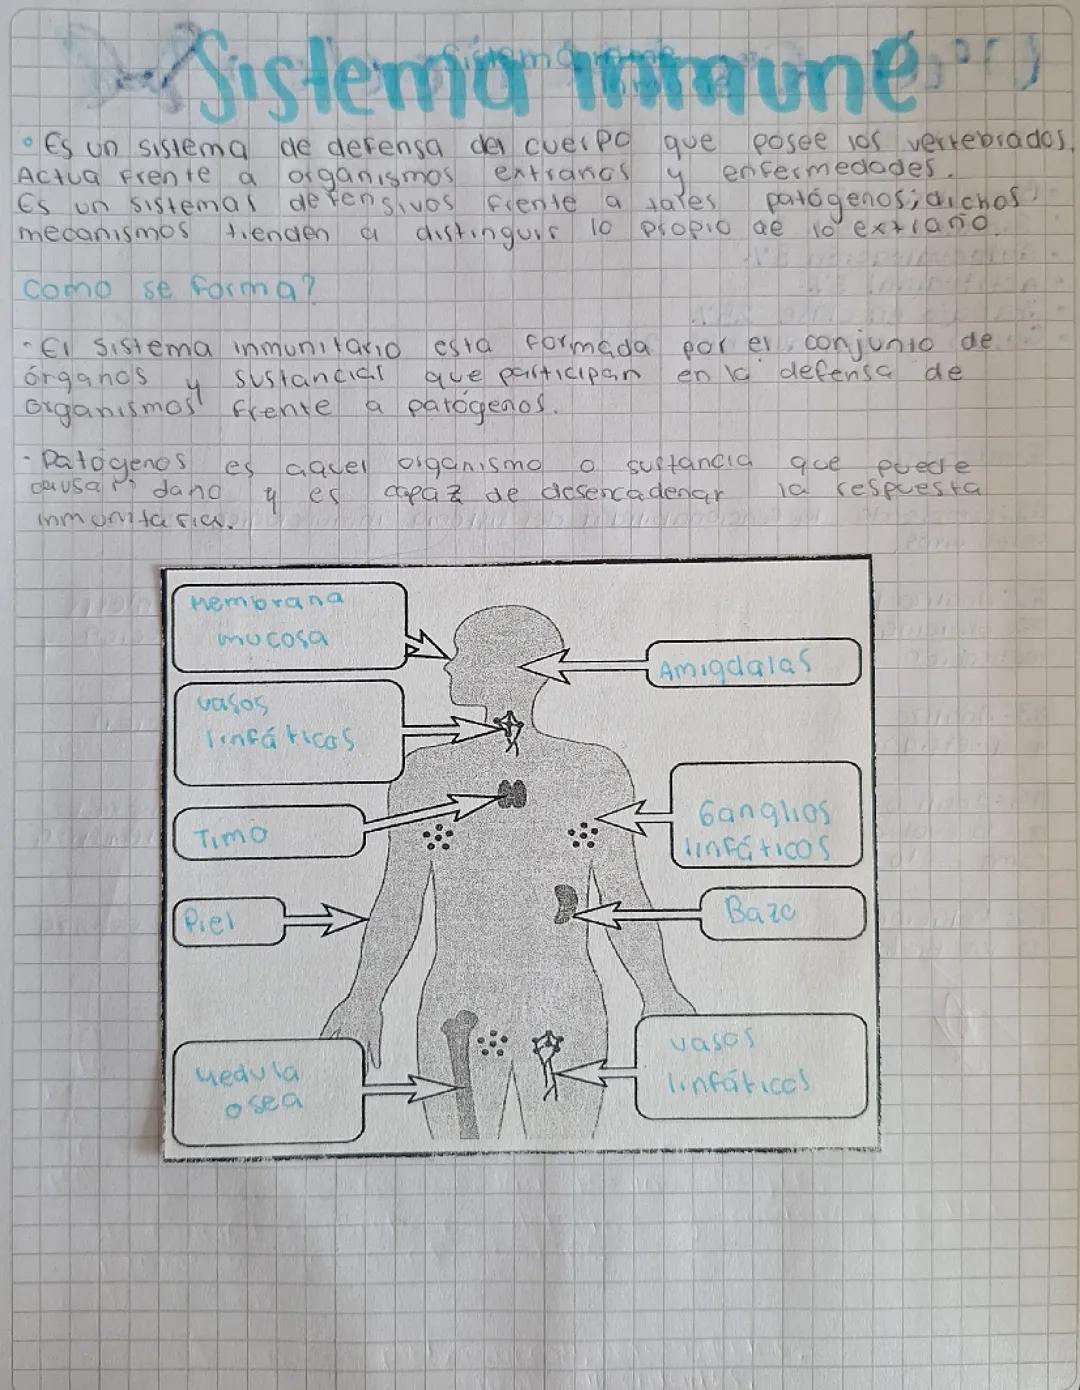 Sistema inmune
• Es un sistema de defensa del cuerpo que posee los vertebrados.
Actua frente a organismos extraños y enfermedades.
Es un sistemas defensivos frente a tales patógenos; dichos
mecanismos tienden a distinguir lo propio de lo extraño.
Como se forma?
- El sistema inmunitario esta formada por el conjunto de
órganos y sustancias que participan en la defensa de
organismos frente a patógenos.
- Patógenos es aquel organismo o sustancia que puede
causar daño y es capaz de desencadenar la respuesta
inmunitaria.
Membrana
mucosa
Amigdalas
vasos
linfáticos
Timo
Ganglios
linfáticos
Piel
Bazo
Medula
osea
vasos
linfáticos